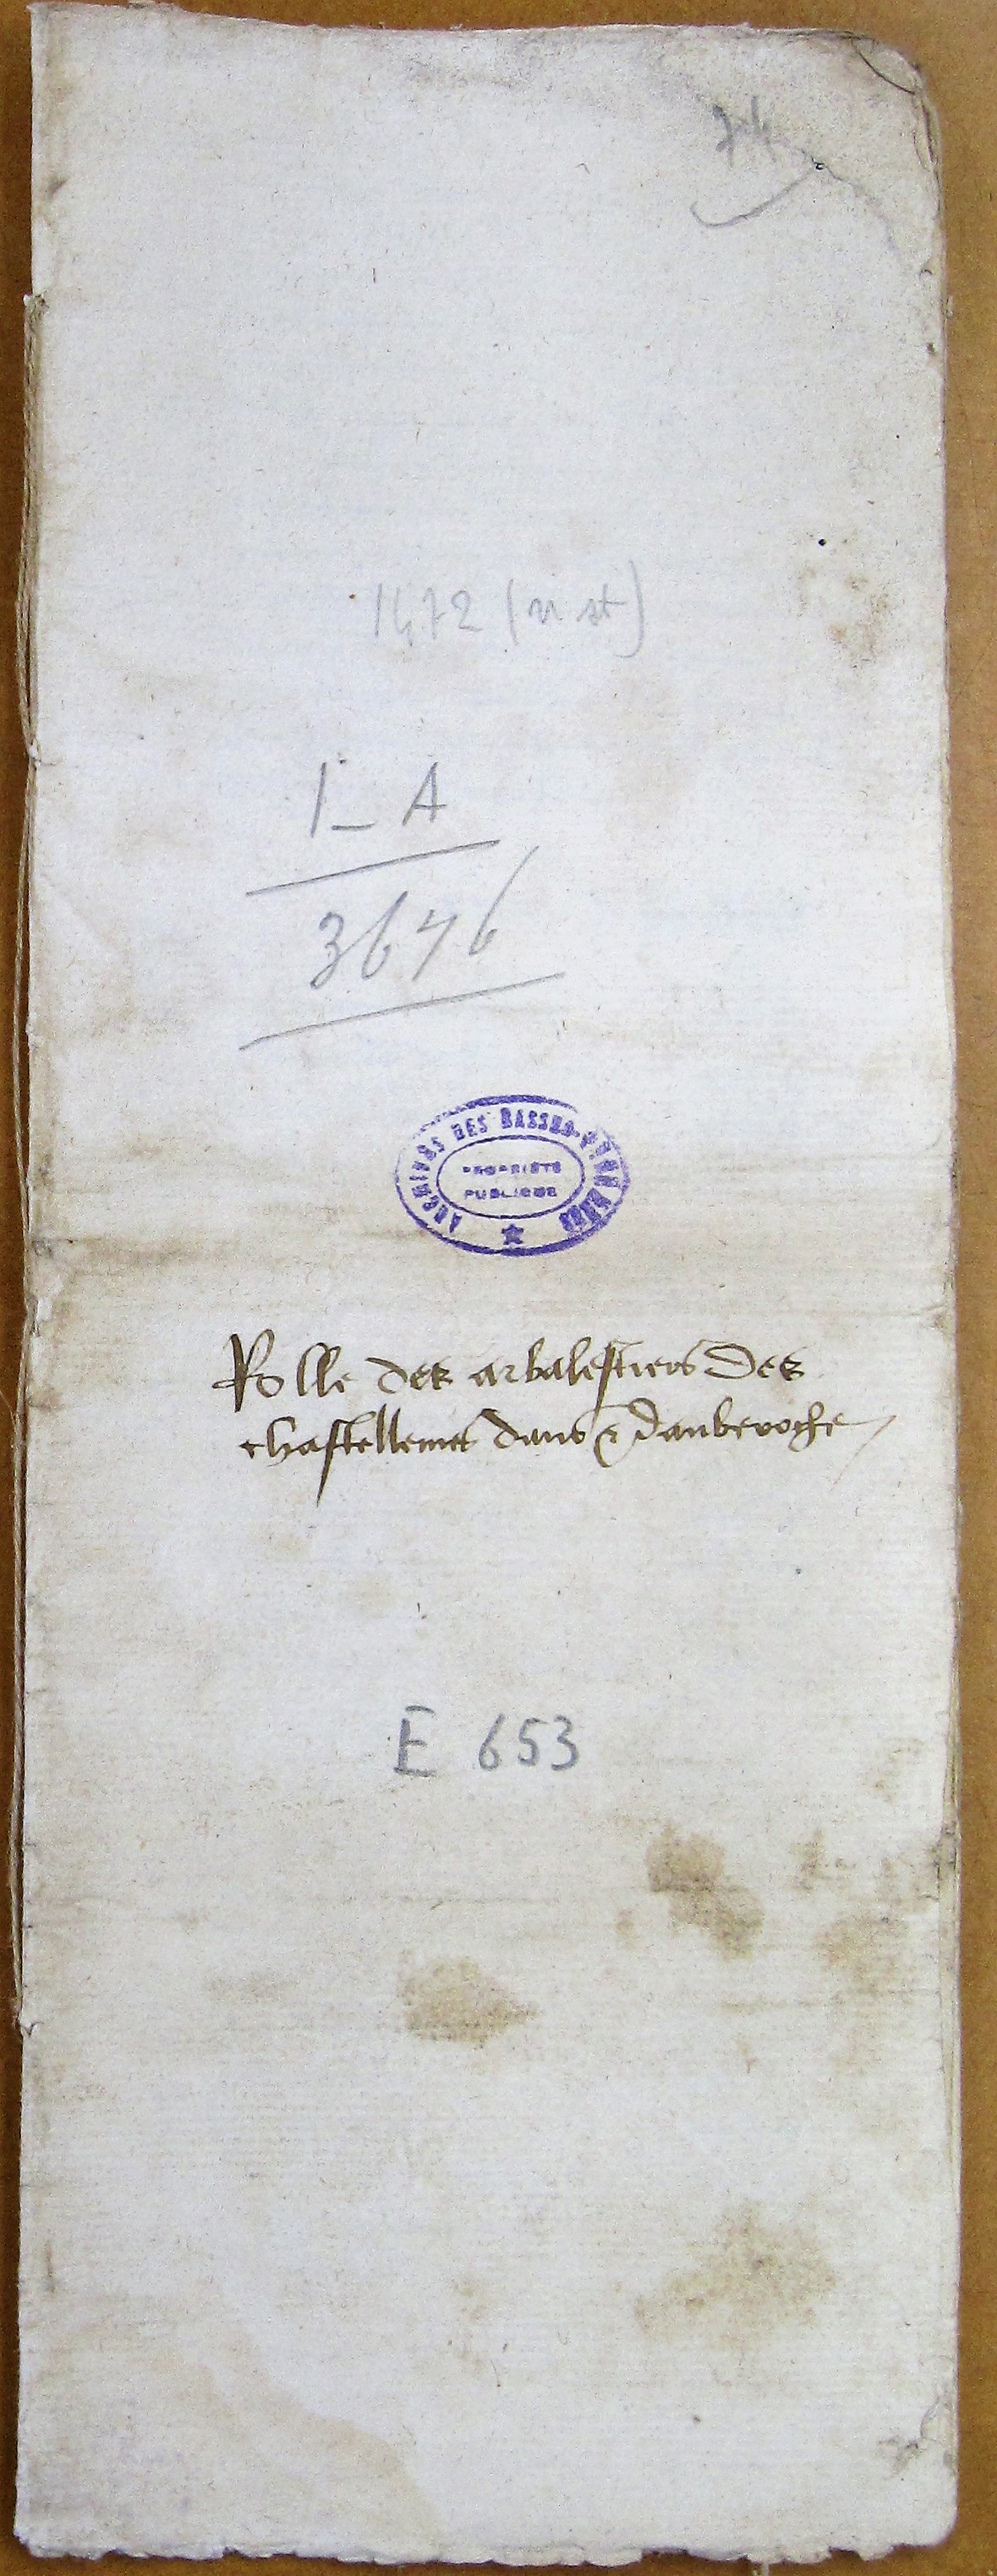 1472 (n st)
1_ A
3676
ARCHIVES DES BASSES-PYRÉNÉES
PROPRIETE
PUBLIQUE
Rolle des arbalestiers des
chastellenies dans & dauberoche
E 653